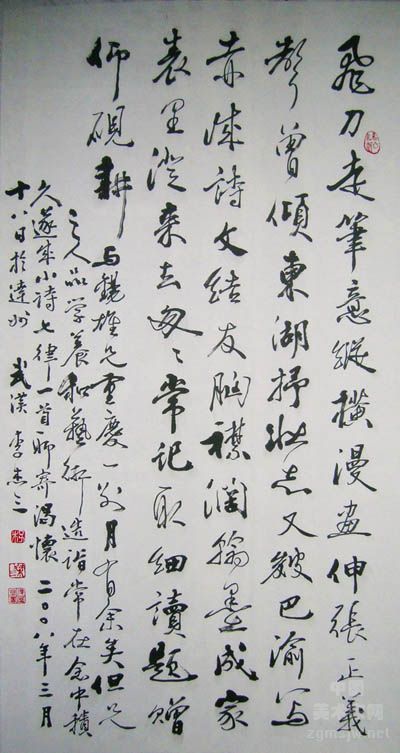 飛刀走筆意縱橫漫畫伸張正義
聲曾傾東湖抒壯志又巴渝寫
赤誠詩文結友胸襟闊翰墨成家
表里澄來去匆〻常記取細讀題贈
仰硯耕 与雄兄重慶一别月有余矣但兄
之人品學養和藝術造詣常在念中積
久遂成小詩七律一首聊寄渴懷 二〇〇八年三月
十八日於達州 武漢 李三
中国
美术家网
zgmsjw.net